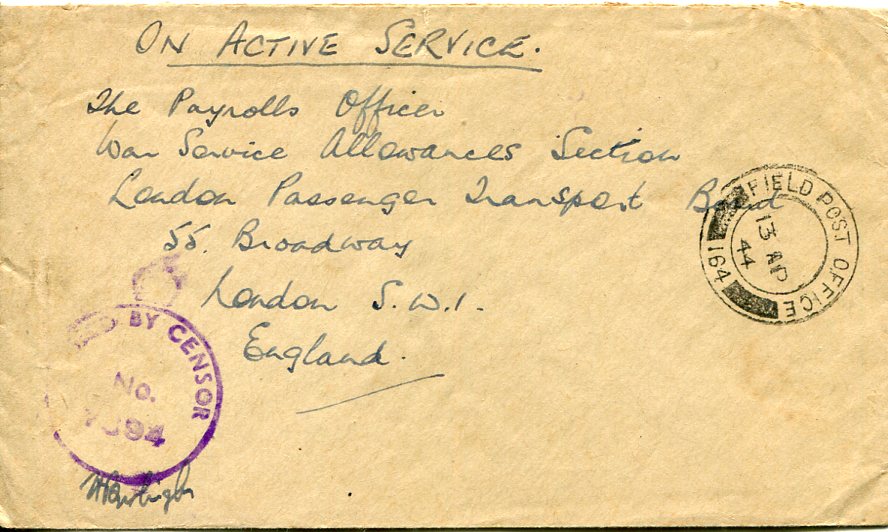 ON ACTIVE SERVICE.
The Payrolls Officer
War Service Allowances Section
London Passenger Transport Board
55. Broadway
London S.W.1.
England.
FIELD POST OFFICE
164
13 AP
44
BY CENSOR
No.